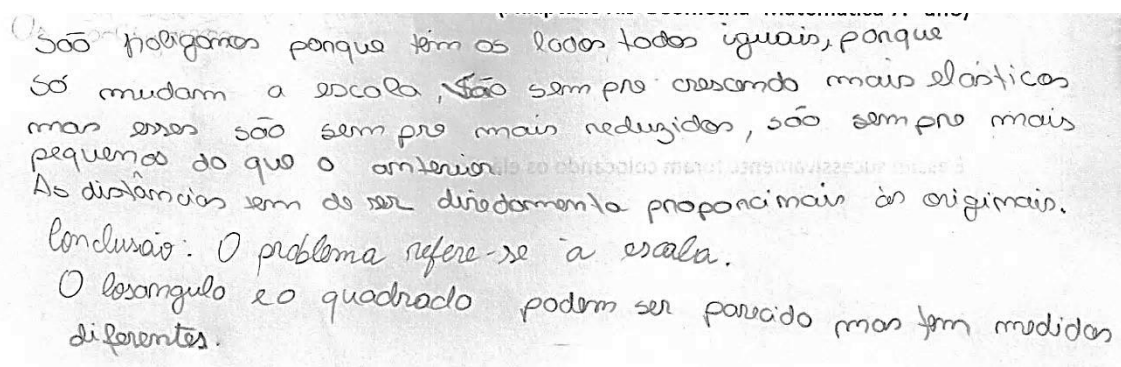 São poligonos porque têm os lados todos iguais, porque
só mudam a escala, são sempre crescendo mais elásticos
mas esses são sempre mais reduzidos, são sempre mais
pequenos do que o anterior.
As distâncias tem de ser diredamente proporcimais às origimais.
Conclusão: O problema refere-se à escala.
O losangulo e o quadrado podem ser parecido mas tem medidas
diferentes.